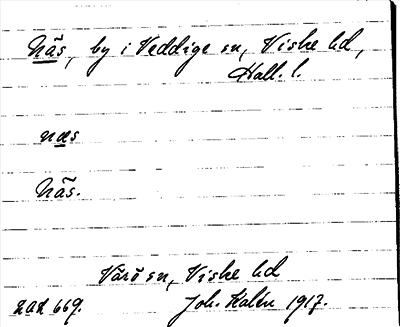 Näs, by i Veddige sn, Viske hd,
Hall. l.
næs
Näs.
Värö sn, Viske hd
ZAZ 669. Joh. Kalén 1917.